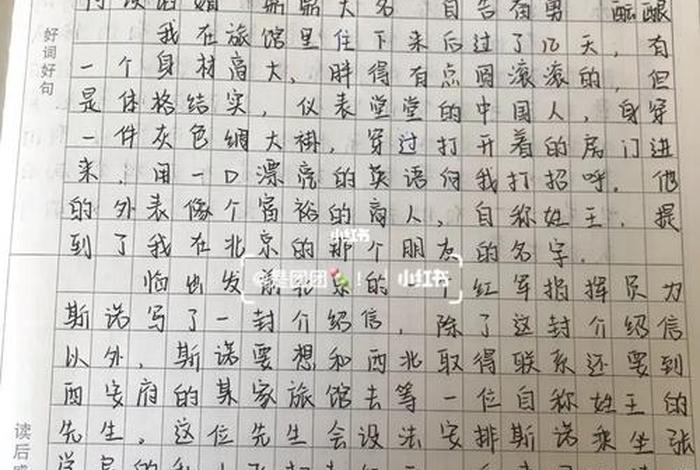 鼎鼎大名 自告奋勇
好词好句
我在旅馆里住下来后过了几天，有
一个身材高大，胖得有点圆滚滚的，但
是体格结实，仪表堂堂的中国人，身穿
一件灰色绸大褂，穿过打开着的房门进
来，用一口漂亮的英语向我打招呼。他
的外表像个富裕的商人，自称姓王，提
到了我在北京的那个朋友的名字。
小红书
的一个红军指挥员为
@是团团 小红书
斯诺写了一封介绍信，除了这封介绍信
以外，斯诺要想和西北取得联系还要到
西安府的某家旅馆去等一位自称姓王的
先生。这位先生会设法安排斯诺乘坐张
读后感